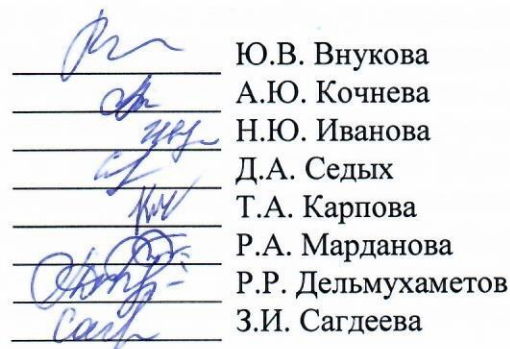 Ю.В. Внукова
А.Ю. Кочнева
Н.Ю. Иванова
Д.А. Седых
Т.А. Карпова
Р.А. Марданова
Р.Р. Дельмухаметов
З.И. Сагдеева